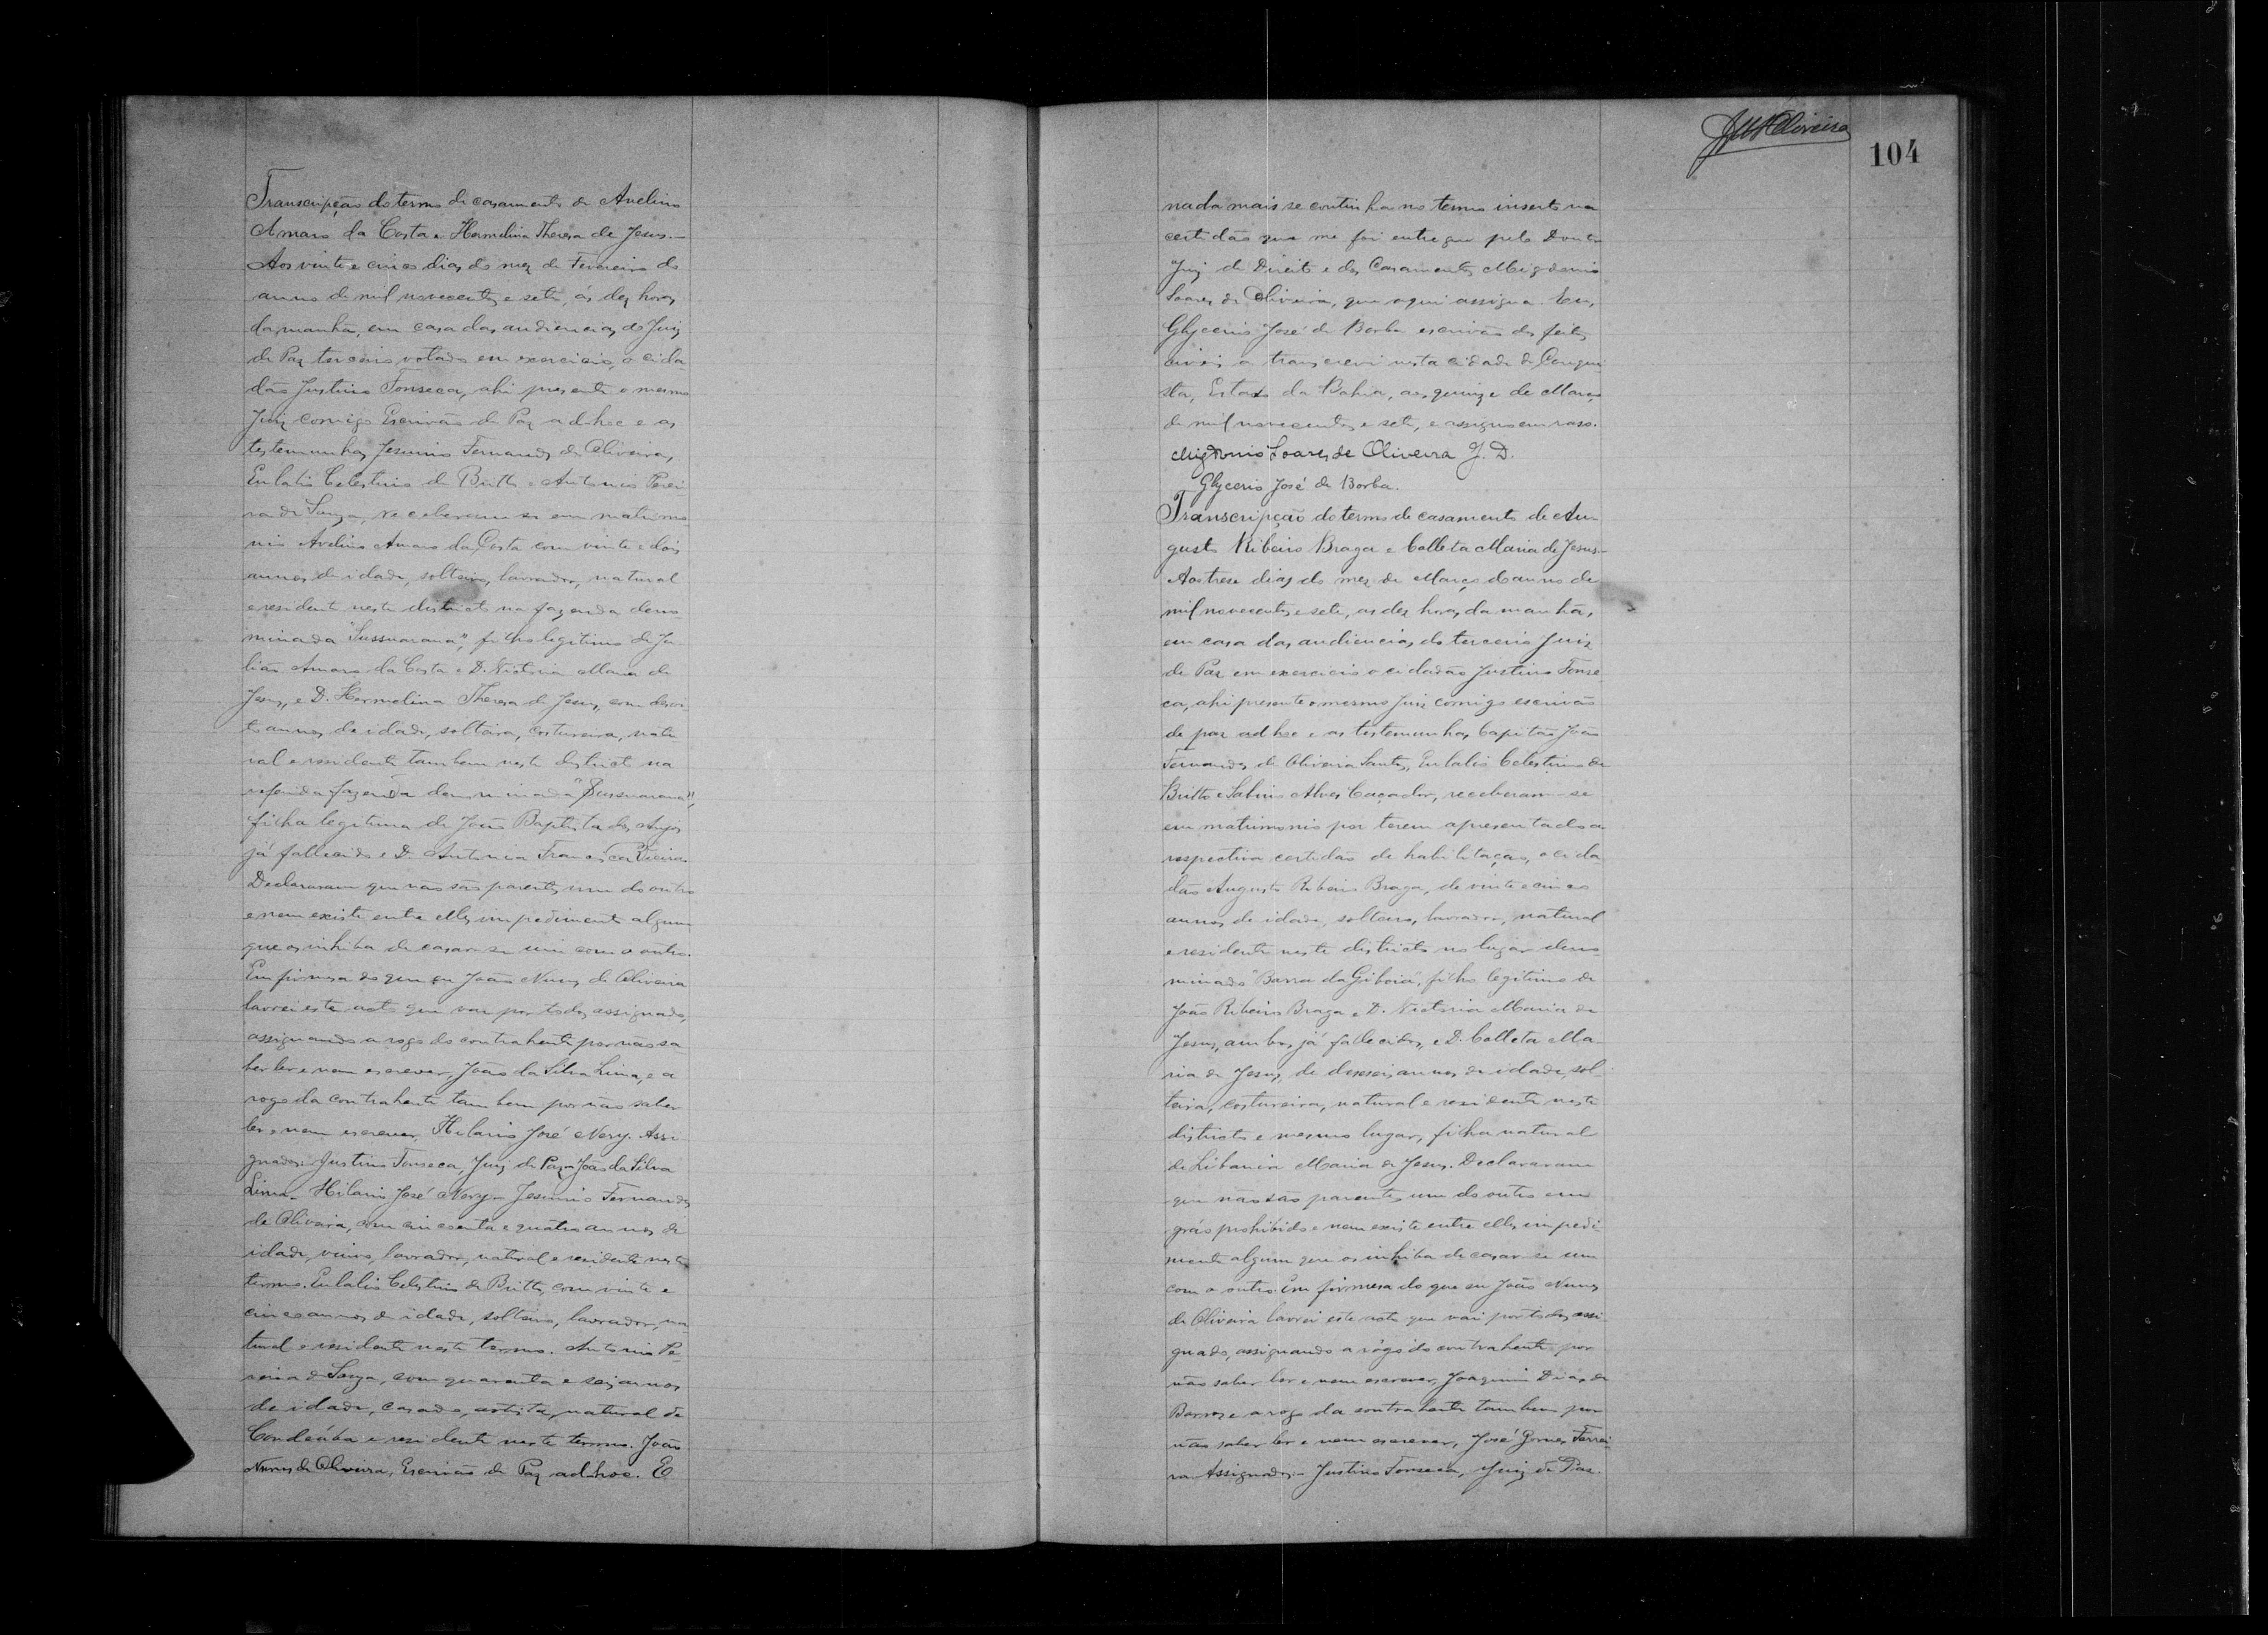 Transcripção do termo de casamento de Avelino
Amaro da Costa e Hermelina Theresa de Jesus.—
Aos vinte e cinco dias do mez de Fevereiro do
anno de mil novecentos e sete, ás dez horas
da manhã, em casa das audiencias do Juiz
de Paz terceiro votado em exercicio, o cida
dão Justino Fonseca, ahi presente o mesmo
Juiz comigo Escrivão de Paz ad-hoc e as
testemunhas Jesuino Fernandes de Oliveira,
Eulalio Celestino de Britto e Antonio Perei
ra de Souza, receberam-se em matrimo
nio Avelino Amaro da Costa com vinte e dois
annos de idade, solteiro, lavrador, natural
e residente neste districto na fazenda deno
minada "Sussuarana", filho legitimo de Ju
lião Amaro da Costa e D. Victoria Maria de
Jesus, e D. Hermelina Theresa de Jesus, com desoi
to annos de idade, solteira, costureira, natu
ral e residente tambem neste districto na
referida fazenda denominada "Sussuarana",
filha legitima de João Baptista dos Anjos
já fallecido e D. Antonia Francisca Vieira.
Declararam que não são parentes um do outro
e nem existe entre elles impedimento algum
que os inhiba de casar-se um com o outro.
Em firmesa do que eu João Nunes de Oliveira
lavrei este acto que vae por todos assignado,
assignando a rogo do contrahente por não sa
ber ler e nem escrever, João da Silva Lima, e a
rogo da contrahente tambem por não saber
ler e nem escrever, Hilario José Nery. Assi
gnados: Justino Fonseca, Juiz de Paz - João da Silva
Lima - Hilario José Nery - Jesuino Fernandes
de Oliveira, com cincoenta e quatro annos de
idade, viuvo, lavrador, natural e residente neste
termo. Eulalio Celestino de Britto, com vinte e
cinco annos de idade, solteiro, lavrador, na
tural e residente neste termo. Antonio Pe
reira de Souza, com quarenta e seis annos
de idade, casado, artista, natural de
Condeúba e residente neste termo. João
Nunes de Oliveira, Escrivão de Paz ad-hoc. E
104
nada mais se continha no termo inserto na
certidão que me foi entregue pelo Doutor
Juiz de Direito e dos Casamentos Migdonio
Soares de Oliveira, que aqui assigna. Eu,
Glycerio José de Borba escrivão dos feitos
civeis a transcrevi nesta cidade de Conqui
sta, Estado da Bahia, aos quinze de Março
de mil novecentos e sete, e assigno em raso.
Migdonio Soares de Oliveira J. D.
Glycerio José de Borba.
Transcripção do termo de casamento de Au
gusto Ribeiro Braga e Colleta Maria de Jesus.—
Aos trese dias do mez de Março do anno de
mil novecentos e sete, as dez horas da manhã,
em casa das audiencias do terceiro Juiz
de Paz em exercicio o cidadão Justino Fonse
ca, ahi presente o mesmo Juiz comigo escrivão
de paz ad hoc e as testemunhas Capitão João
Fernandes de Oliveira Santos, Eulalio Celestino de
Britto e Sabino Alves Caçador, receberam-se
em matrimonio por terem apresentado a
respectiva certidão de habilitação, o cida
dão Augusto Ribeiro Braga, de vinte e cinco
annos de idade, solteiro, lavrador, natural
e residente neste districto no lugar deno
minado "Barra da Giboia", filho legitimo de
João Ribeiro Braga e D. Victoria Maria de
Jesus, ambos já fallecidos, e D. Colleta Ma
ria de Jesus, de deseseis annos de idade, sol
teira, costureira, natural e residente neste
districto e mesmo lugar, filha natural
de Libania Maria de Jesus. Declararam
que não são parentes um do outro em
gráo prohibido e nem existe entre elles impedi
mento algum que os inhiba de casar-se um
com o outro. Em firmesa do que eu João Nunes
de Oliveira lavrei este acto que vai por todos assi
gnado, assignando a rogo do contrahente por
não saber ler e nem escrever, Joaquim Dias de
Barros e a rogo da contrahente tambem por
não saber ler e nem escrever, José Gomes Ferrei
ra. Assignados: - Justino Fonseca, Juiz de Paz.